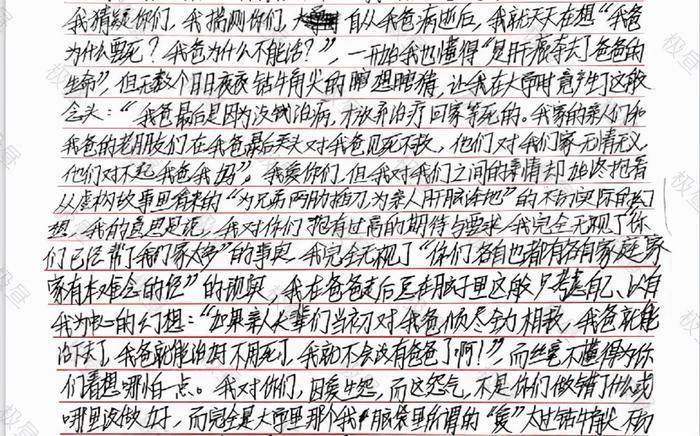 我猜疑你们，我揣测你们，自从我爸病逝后，我就天天在想“我爸
为什么要死？我爸为什么不能活？”，一开始我也懂得“是肝癌夺去了爸爸的
生命”，但无数个日日夜夜钻牛角尖的瞎想瞎猜，让我在大学时竟产生了这般
念头：“我爸最后是因为没钱治病，才放弃治疗回家等死的。我家的亲人们和
我爸的老朋友们在我爸最后关头对我爸见死不救，他们对我们家无情无义
他们对不起我爸我妈”。我爱你们，但我对我们之间的亲情却始终抱着
从虚构故事里看来的“为兄弟两肋插刀为亲人肝脑涂地”的不切实际的幻
想。我的意思是说，我对你们抱有过高的期待与要求，我完全无视了“你
们已经帮了我们家太多”的事实，我完全无视了“你们各自也都有各自家庭，家
家有本难念的经”的现实，我在爸爸走后逗在脑子里这般只考虑自己、以自
我为中心的幻想：“如果亲人长辈们当初对我爸倾尽全力相救，我爸就能
活下去了，我爸就能治好不用死了，我就不会没有爸爸了啊！”，而丝毫不懂得为你
们着想哪怕一点。我对你们，因爱生怨，而这怨气，不是你们做错了什么或
哪里没做好，而完全是大学里那个我脑袋里所谓的“爱”太过钻牛角尖不切
极昼